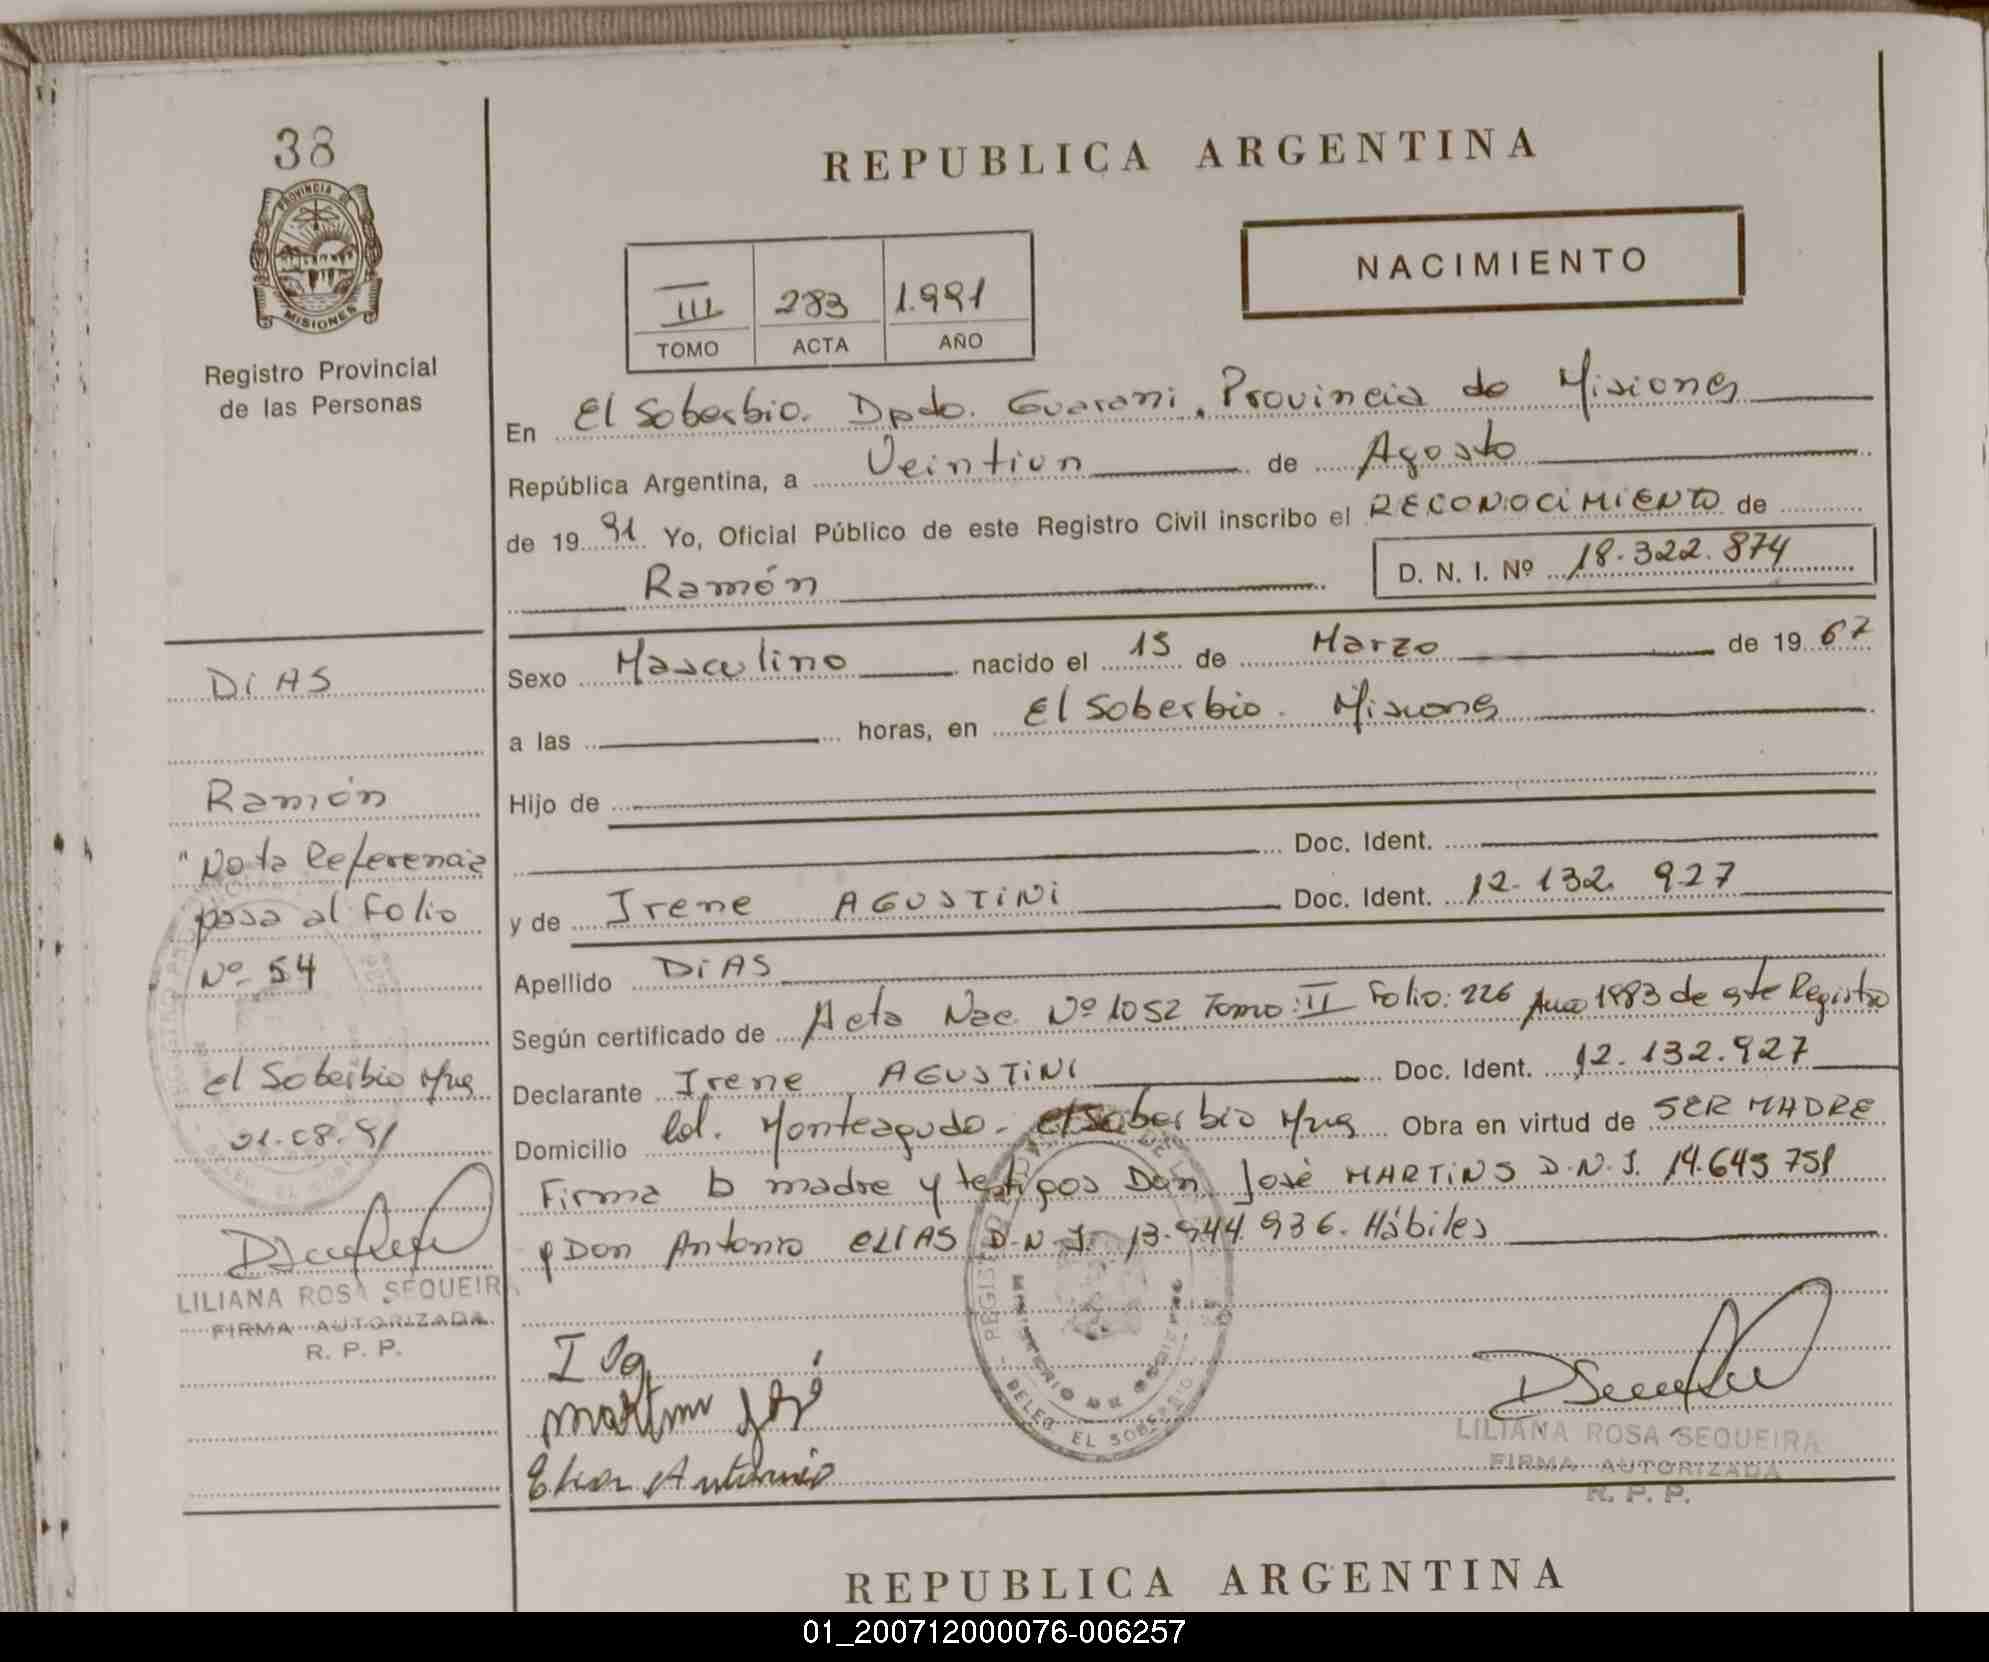 38
PROVINCIA DE
MISIONES
Registro Provincial
de las Personas
REPUBLICA ARGENTINA
NACIMIENTO
III 283 1.991
TOMO ACTA AÑO
En El Soberbio. Dpdo. Guarani, Provincia de Misiones
República Argentina, a Veintiun de Agosto
de 19 91 Yo, Oficial Público de este Registro Civil inscribo el RECONOCIMIENTO de
Ramón D. N. I. Nº 18.322.874
Sexo Masculino nacido el 15 de Marzo de 19 67
a las horas, en El Soberbio. Misiones
Hijo de
Doc. Ident.
y de Irene AGUSTINI Doc. Ident. 12.132.927
Apellido DIAS
Según certificado de Acta Nac. Nº 1052 Tomo: II Folio: 226 Año 1983 de este Registro
Declarante Irene AGUSTINI Doc. Ident. 12.132.927
Domicilio Col. Monteagudo. El Soberbio Mns Obra en virtud de SER MADRE
Firma la madre y testigos Don José MARTINS D.N.I. 14.645 751
y Don Antonio ELIAS D.N.I. 13.944.936. Hábiles
I Ag
Martins José
Elias Antonio
DELEG. EL SOBERBIO
LILIANA ROSA SEQUEIRA
FIRMA AUTORIZADA
R. P. P.
DIAS
Ramón
"Nota Referencia
pasa al Folio
Nº 54
El Soberbio Mns
21.08.91
LILIANA ROSA SEQUEIRA
FIRMA AUTORIZADA
R. P. P.
REPUBLICA ARGENTINA
01_200712000076-006257